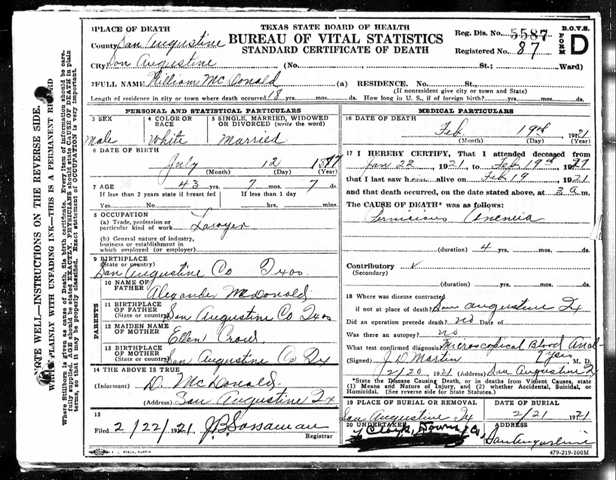 TEXAS STATE BOARD OF HEALTH
BUREAU OF VITAL STATISTICS
STANDARD CERTIFICATE OF DEATH
Reg. Dis. No. 5587
Registered No. 87
B.O.V.S.
FORM D
1 PLACE OF DEATH
County San Augustine
City San Augustine (No. St.; Ward)
2 FULL NAME William McDonald (a) RESIDENCE. No. St.
(If nonresident give city or town and State)
Length of residence in city or town where death occurred 18 yrs. mos. ds. How long in U. S., if of foreign birth? yrs. mos. ds.
NOTE WELL—INSTRUCTIONS ON THE REVERSE SIDE.
WRITE PLAINLY WITH UNFADING INK—THIS IS A PERMANENT RECORD
PERSONAL AND STATISTICAL PARTICULARS
3 SEX
Male
4 COLOR OR RACE
White
5 SINGLE, MARRIED, WIDOWED OR DIVORCED (write the word)
Married
6 DATE OF BIRTH
July 12
(Month) (Day) (Year)
7 AGE 43 yrs. 7 mos. 7 ds.
If less than 2 years state if breast fed
If less than 1 day
Yes No hrs. mins.
8 OCCUPATION
(a) Trade, profession or particular kind of work Lawyer
(b) General nature of industry, business or establishment in which employed (or employer)
9 BIRTHPLACE
(State or country)
San Augustine Co Texas
PARENTS
10 NAME OF FATHER Alexander McDonald
11 BIRTHPLACE OF FATHER (State or country) San Augustine Co Texas
12 MAIDEN NAME OF MOTHER Ellen
13 BIRTHPLACE OF MOTHER (State or country) San Augustine Co Tx
14 THE ABOVE IS TRUE
(Informant) D. McDonald
(Address) San Augustine Tx
15
Filed 2/22/21 192 J.B. Sossaman
Registrar
MEDICAL PARTICULARS
16 DATE OF DEATH
Feb. 19th 1921
(Month) (Day) (Year)
17 I HEREBY CERTIFY, That I attended deceased from
Jan 22, 1921 to Feb 19th, 1921
that I last saw h alive on Feb 19, 1921
and that death occurred, on the date stated above, at m.
The CAUSE OF DEATH* was as follows:
Pernicious Anemia
(duration) 4 yrs. mos. ds.
Contributory
(Secondary)
(duration) yrs. mos. ds.
18 Where was disease contracted
if not at place of death? San Augustine Tx
Did an operation precede death? no Date of
Was there an autopsy? no
What test confirmed diagnosis? Microscopical Blood Analysis
(Signed) J D Martin M. D.
2/20, 1921 (Address) San Augustine Tx
*State the Disease Causing Death, or in deaths from Violent Causes, state (1) Means and Nature of Injury, and (2) whether Accidental, Suicidal, or Homicidal. (See reverse side for Statutes.)
19 PLACE OF BURIAL OR REMOVAL
San Augustine Tx
DATE OF BURIAL
2/21 1921
20 UNDERTAKER
ADDRESS
San Augustine
479-219-100M